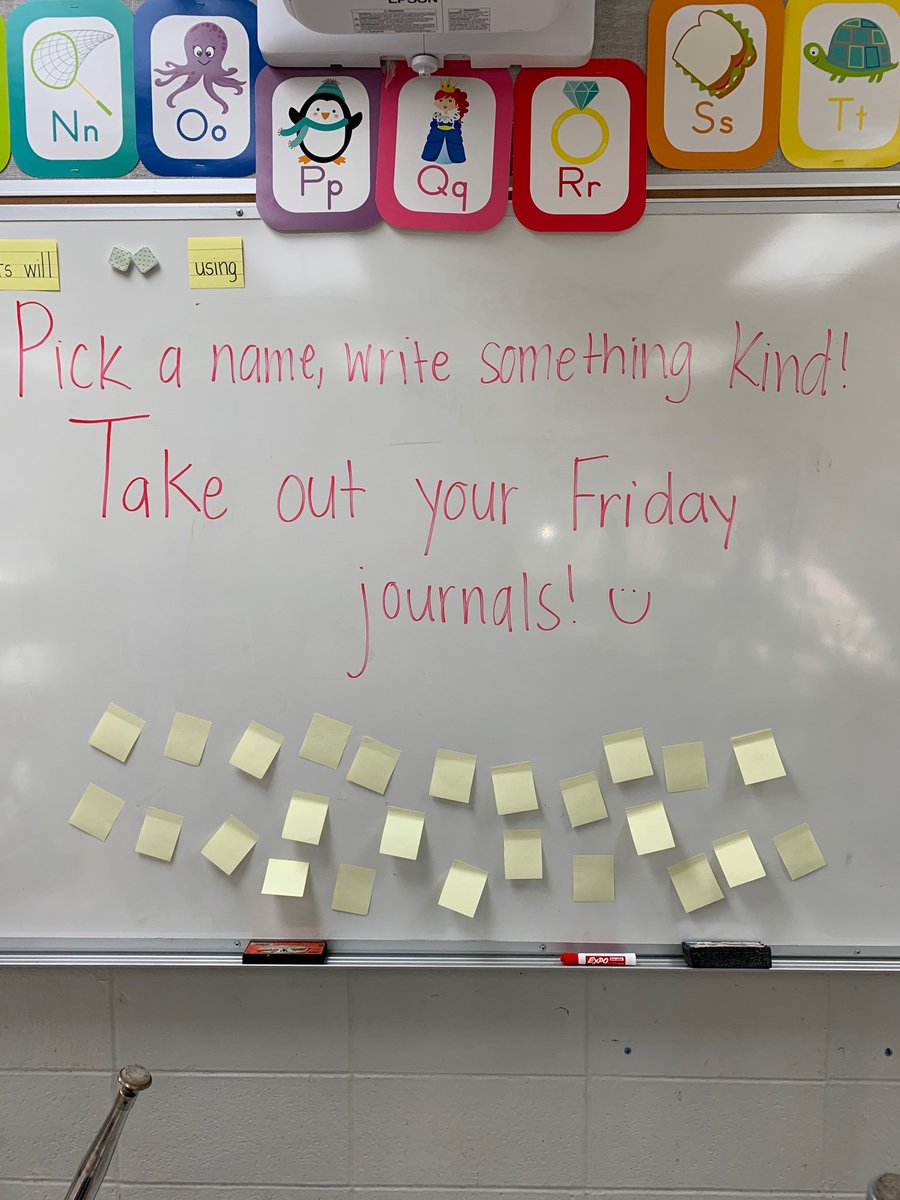 EPSON
Nn
Oo
Pp
Qq
Rr
Ss
Tt
will
using
Pick a name, write something kind!
Take out your Friday
journals! :)
EXPO